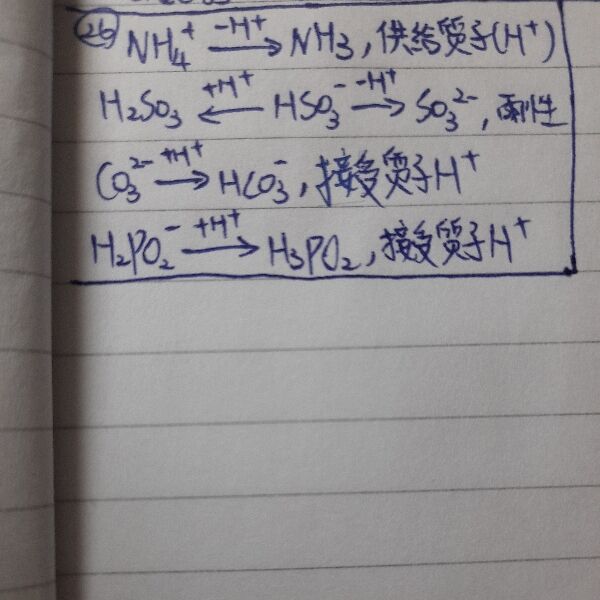 (26) NH₄⁺ -H⁺→ NH₃, 供给质子(H⁺)
H₂SO₃ ←+H⁺ HSO₃⁻ -H⁺→ SO₃²⁻, 两性
CO₃²⁻ +H⁺→ HCO₃⁻, 接受质子H⁺
H₂PO₂⁻ +H⁺→ H₃PO₂, 接受质子H⁺